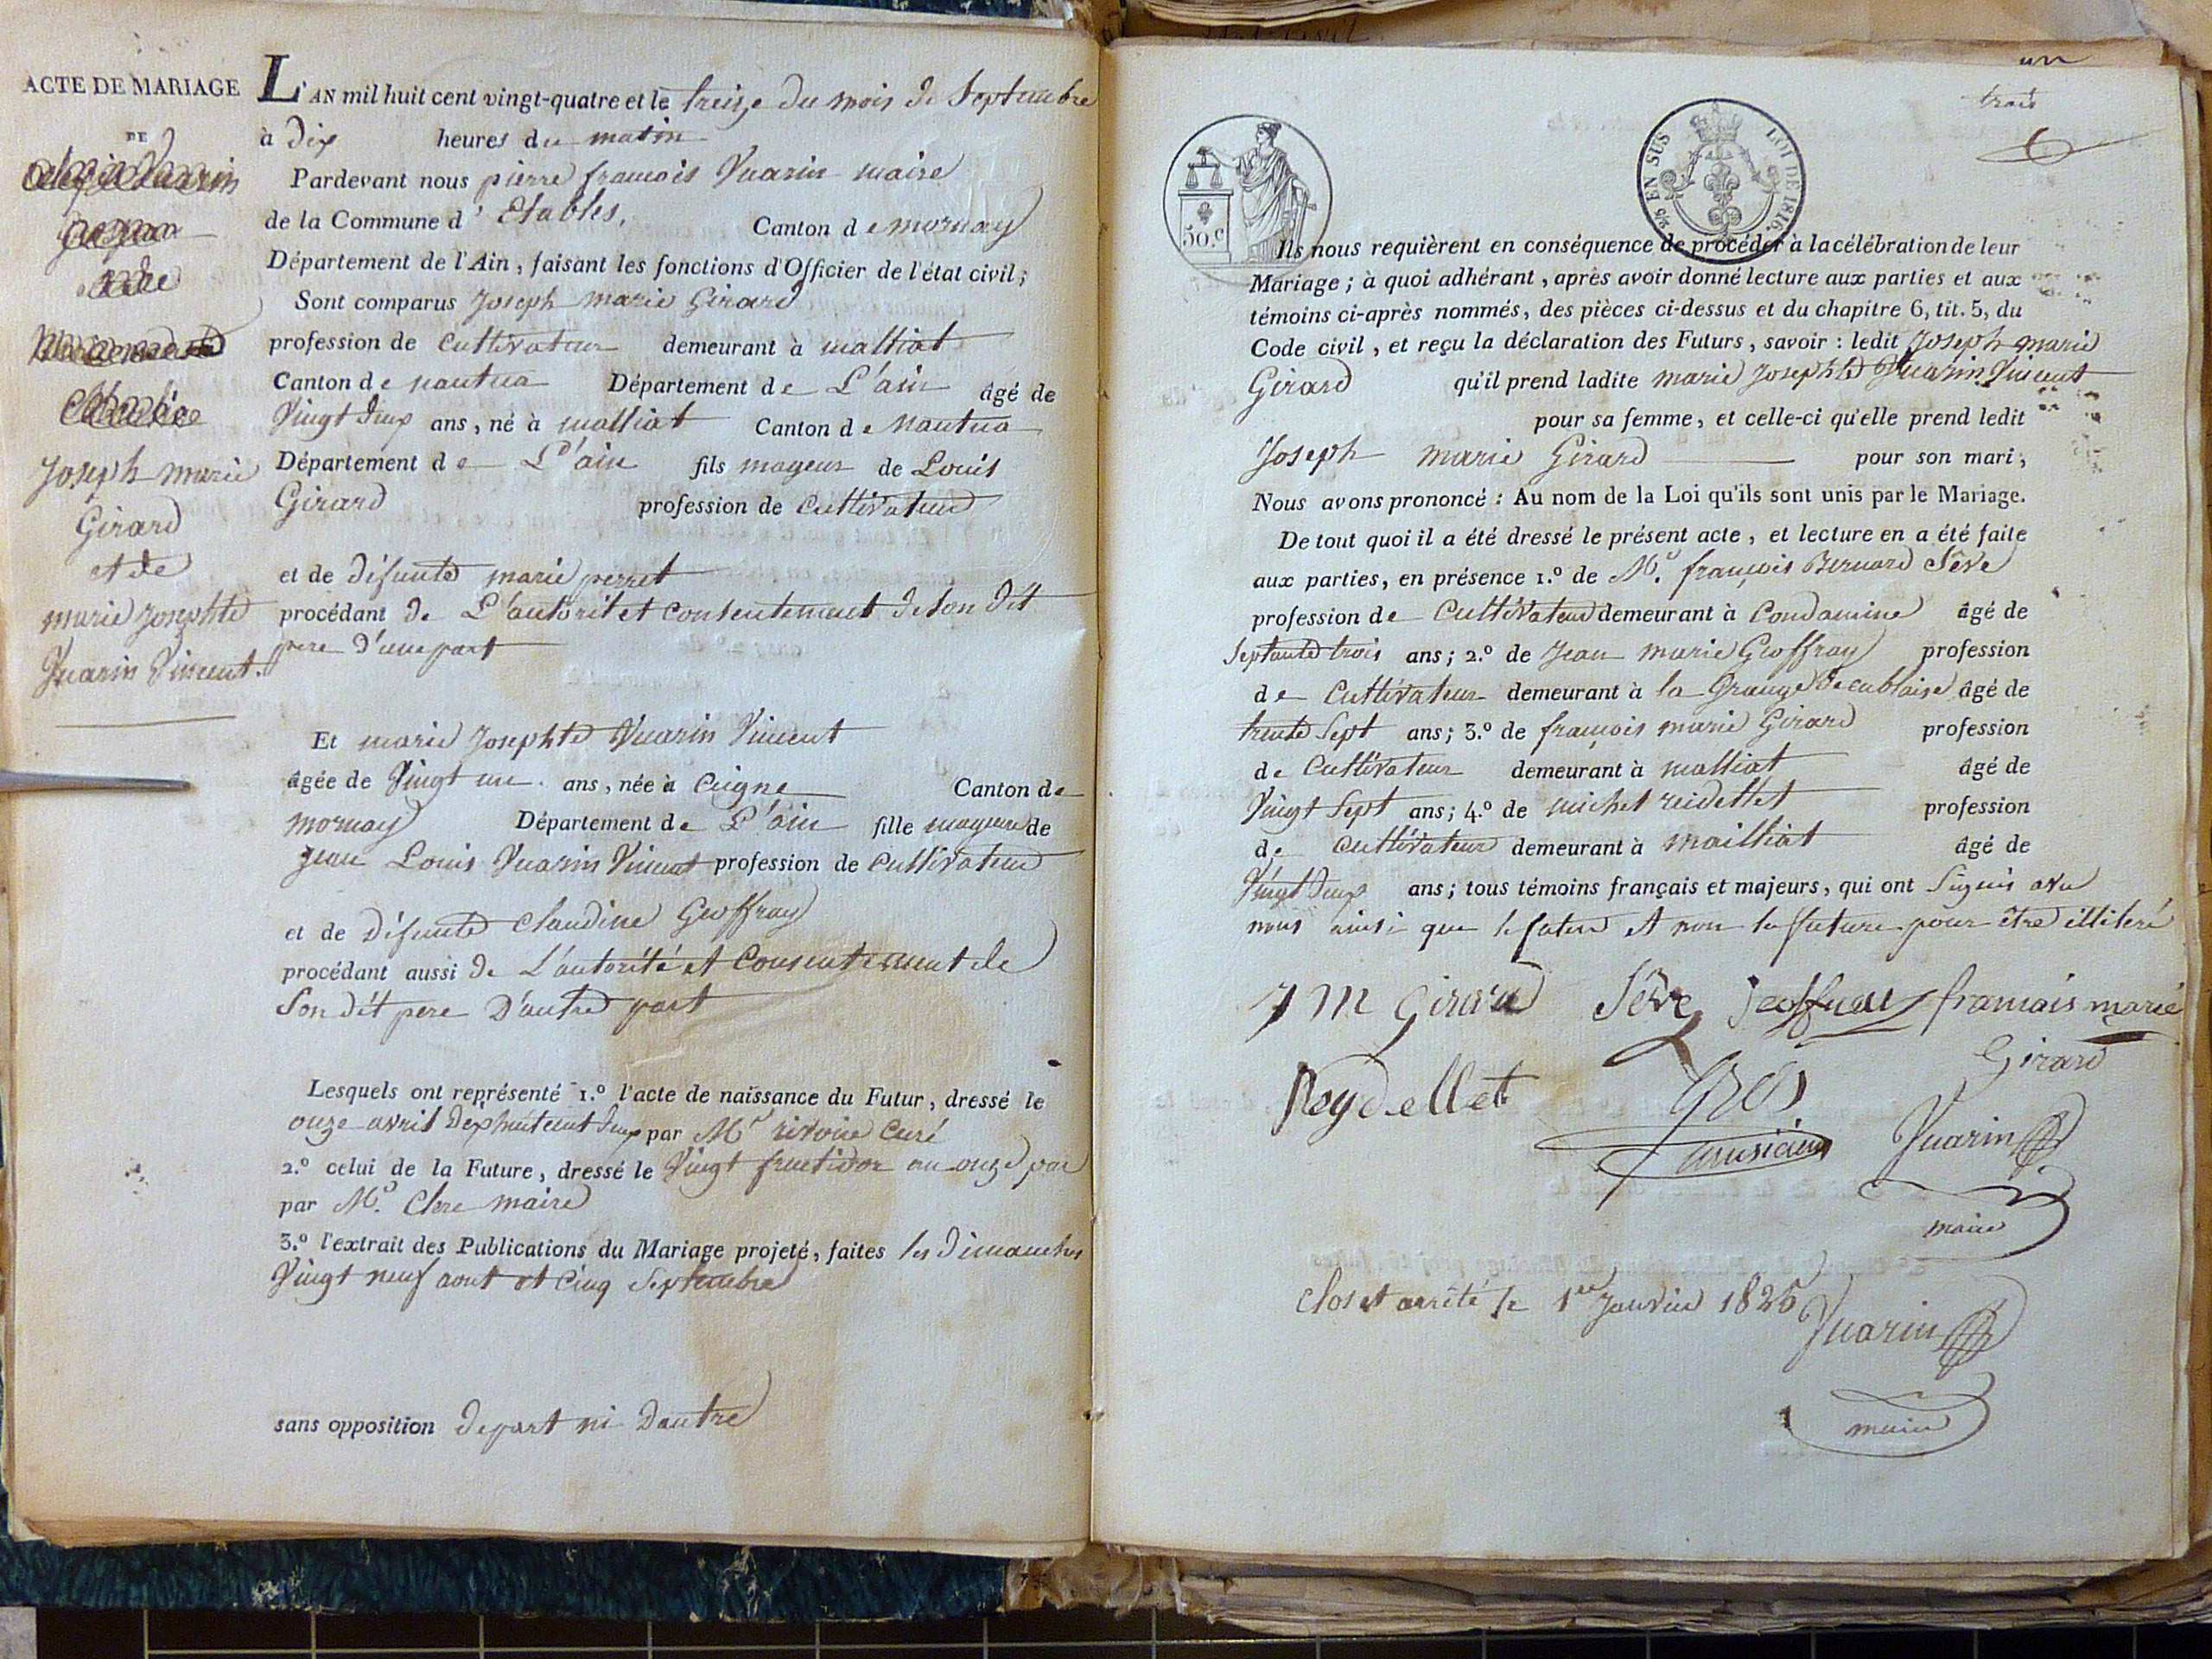 ACTE DE MARIAGE
DE
Joseph marie
Girard
et de
marie Josephte
Vuarin Vincent.
L'AN mil huit cent vingt-quatre et le treize du mois de Septembre
à dix heures du matin
Pardevant nous pierre francois Vuarin maire
de la Commune d' Etables, Canton de mornay
Département de l'Ain, faisant les fonctions d'Officier de l'état civil;
Sont comparus Joseph marie Girard
profession de Cultivateur demeurant à malliat
Canton de nantua Département de L'ain âgé de
Vingt deux ans, né à malliat Canton de Nantua
Département de L'ain fils mageur de Louis
Girard profession de Cultivateur
et de défunte marie perret
procédant de L'autorit et consentement de son dit
pere d'une part
Et marie Josephte Vuarin Vincent
âgée de Vingt un ans, née à Ceigne Canton de
mornay Département de L'ain fille mageure de
Jean Louis Vuarin Vincent profession de Cultivateur
et de défunte Claudine Geoffray
procédant aussi de L'autorité et Consentement de
Son dit pere D'autre part
Lesquels ont représenté 1.º l'acte de naissance du Futur, dressé le
onze avril dixhuitcent deux par Mr rivoire Curé
2.º celui de la Future, dressé le Vingt fructidor an onze par
par Mr. Clere maire
3.º l'extrait des Publications du Mariage projeté, faites les dimanches
Vingt neuf aout et Cinq Septembre
sans opposition depart ni Dautre
un
trois
50.c
2/5 EN SUS LOI DE 1816.
Ils nous requièrent en conséquence de procéder à la célébration de leur
Mariage; à quoi adhérant, après avoir donné lecture aux parties et aux
témoins ci-après nommés, des pièces ci-dessus et du chapitre 6, tit. 5, du
Code civil, et reçu la déclaration des Futurs, savoir: ledit Joseph marie
Girard qu'il prend ladite marie Josephte Vuarin Vincent
pour sa femme, et celle-ci qu'elle prend ledit
Joseph marie Girard pour son mari,
Nous avons prononcé: Au nom de la Loi qu'ils sont unis par le Mariage.
De tout quoi il a été dressé le présent acte, et lecture en a été faite
aux parties, en présence 1.º de Mr. françois Bernard Sêve
profession de Cultivateur demeurant à Condamine âgé de
Septante trois ans; 2.º de Jean marie Geoffray profession
de Cultivateur demeurant à la Grange âgé de
trente Sept ans; 3.º de françois marie Girard profession
de Cultivateur demeurant à malliat âgé de
Vingt Sept ans; 4.º de michel reidellet profession
de Cultivateur demeurant à mailliat âgé de
Vingt deux ans; tous témoins français et majeurs, qui ont Signés avec
nous ainsi que le futur et non la future pour être illiteré
J M Girard Sêve Jeoffray framais marie
Girard
Reydellet Gros Vuarin
maire
Clos et arrêté le 1er Janvier 1825
Vuarin
maire